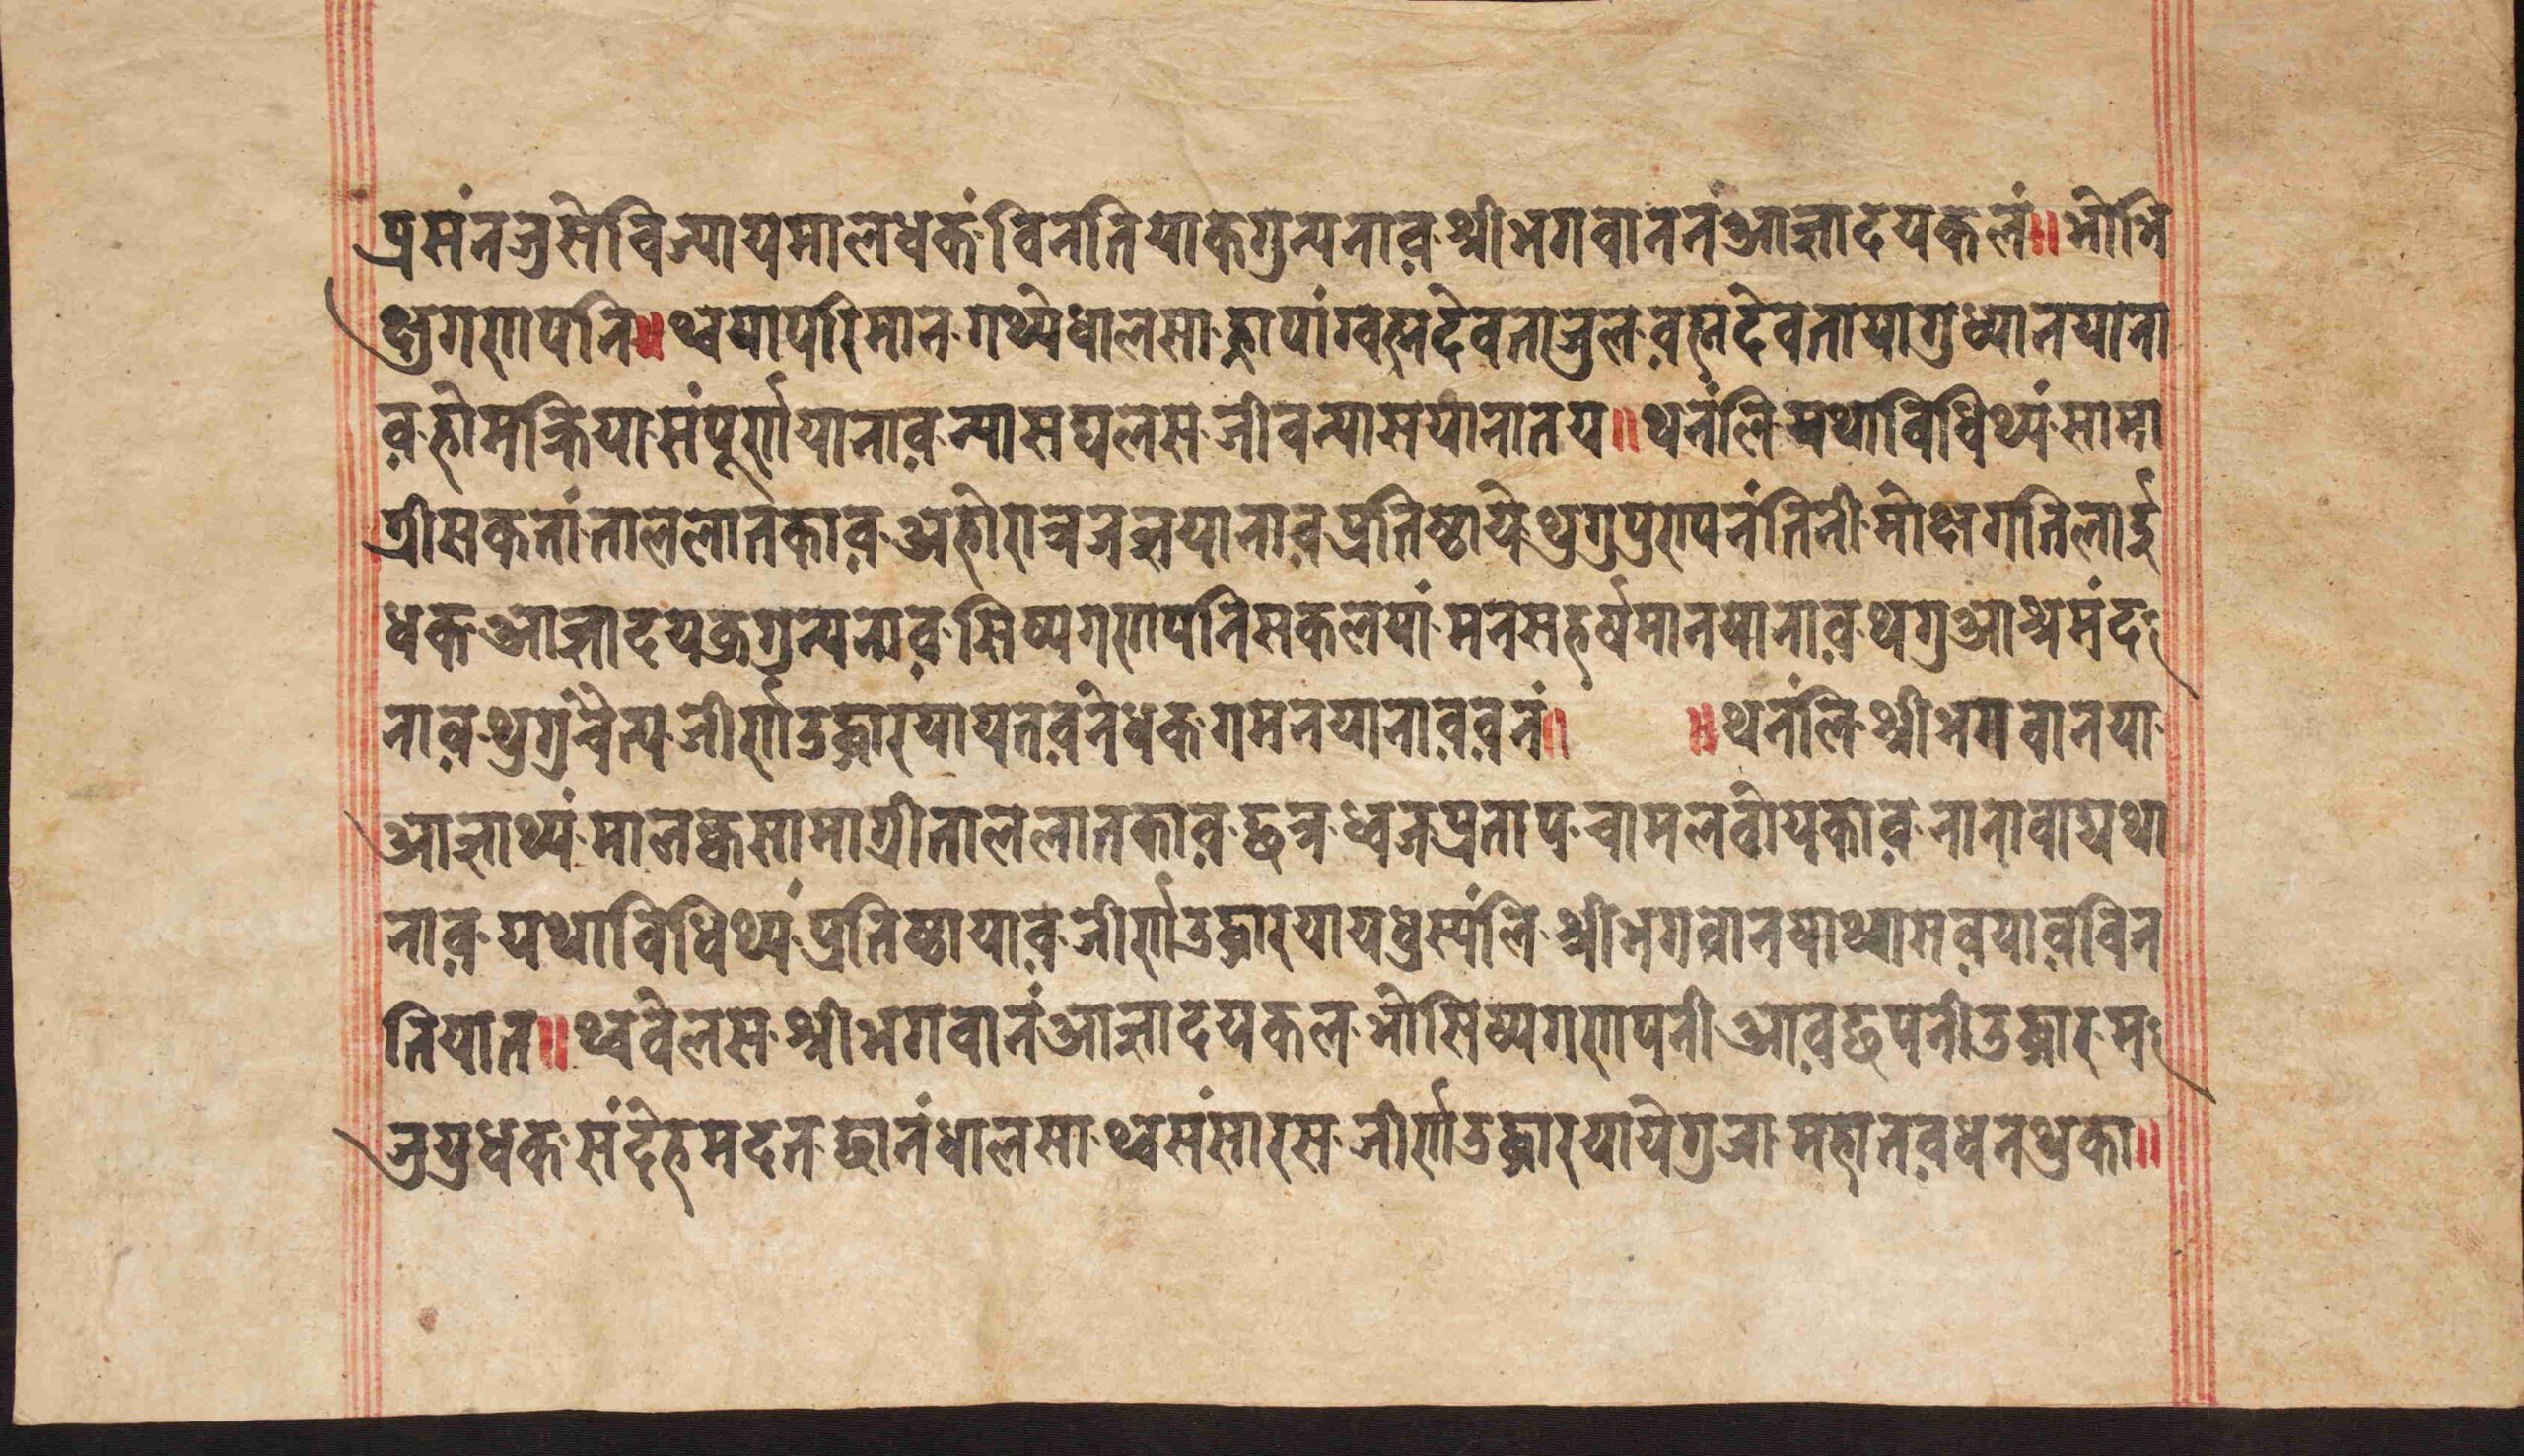 प्रसंनजुसेविज्यायमालधकं विनतियाकगुन्यनाव श्रीभगवाननंआज्ञादयकलं॥भोभि
क्षुगणपनि॥थ्वयापरिमान गथ्यधालसा ह्नापांग्वह्मदेवताजुल वह्मदेवतायागुध्यानयाना
व होमक्रियासंपूर्णयानाव न्यासद्यलस जीवन्यासयानातय॥थनंलि यथाविधिथ्यं सामा
ग्रीसकतां ताललातकाव अहोरात्रजज्ञयानाव प्रतिष्ठायेथुगुपुण्यनंतिनी मोक्षगतिलाई
धक आज्ञादयकुगुन्यनाव सिष्यगणपनिसकलयां मनसहर्षमानयानाव थगुआश्रमंद
नाव थुगुचैत्य जीर्णउद्धारयायतवनेधक गमनयानाववनं॥ ॥थनंलि श्रीभगवानया
आज्ञाथ्यं मालक्वसामाग्रीताललातकाव छत्र ध्वजप्रताप चामलवोयकाव नानावाद्यथा
नाव यथाविधिथ्यं प्रतिष्ठायाव जीर्णउद्धारयायधुस्यंलि श्रीभगवानयाथ्यासवयावविन
तियात॥थ्ववेलस श्रीभगवानंआज्ञादयकल भोसिष्यगणपनी आवछपनीउद्धार म
जुयुधक संदेहमदत छानंधालसा थ्वसंसारस जीर्णउद्धारयायेगुजा महातवधनथुका॥